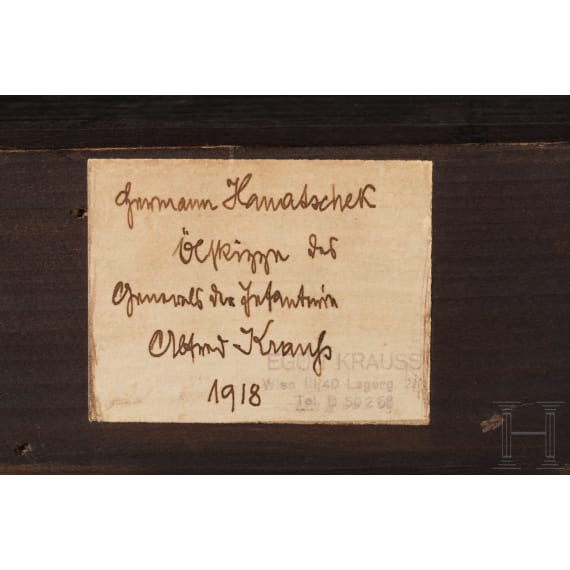 Hermann Hanatschek
Ölskizze des
Generals der Infanterie
Alfred Krauß
1918
EGON KRAUSS
Wien III/40 Lagerg. 2/
Tel. B 50 2 68
H